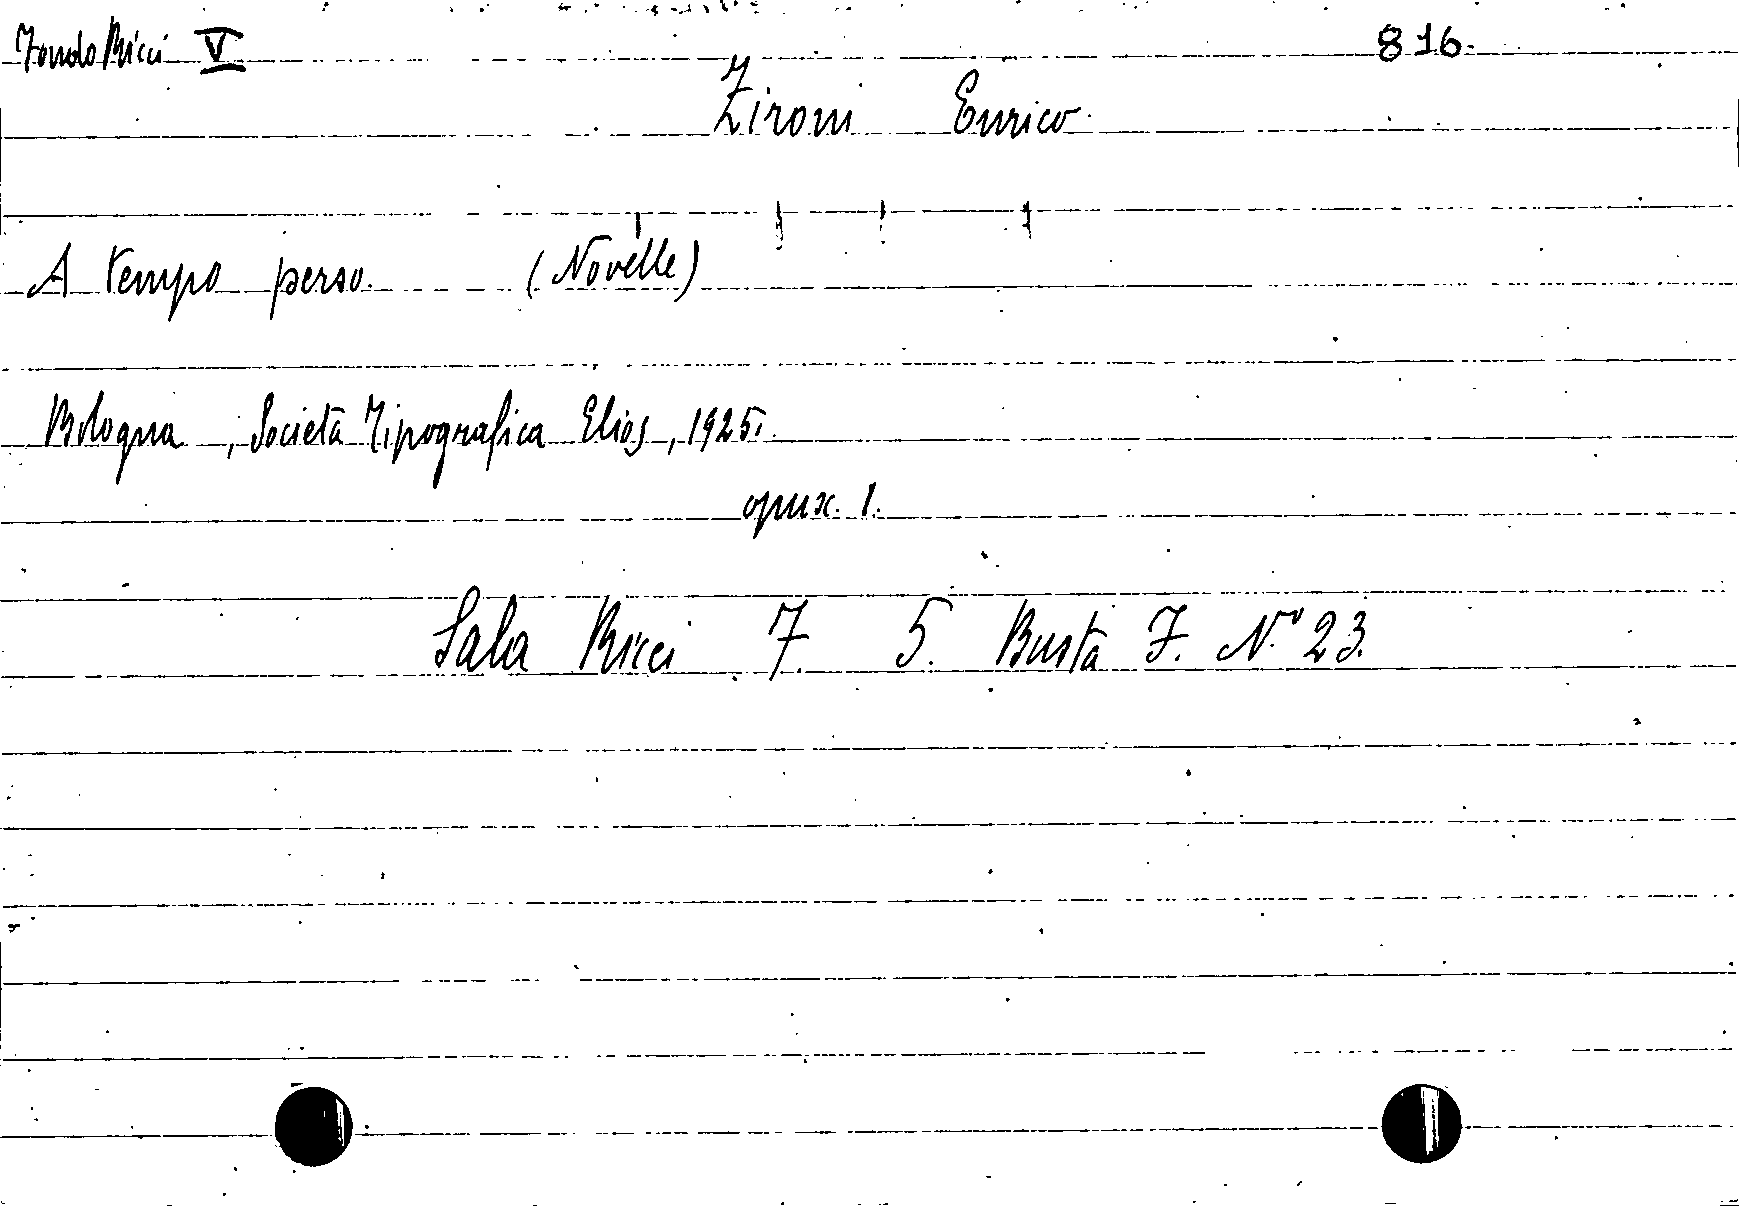 Fondo Ricci V 816.
Zironi Enrico
A tempo perso. (Novelle)
Bologna, Società Tipografica Elios, 1925.
opusc. 1.
Sala Ricci 7. 5. Busta F. N° 23.